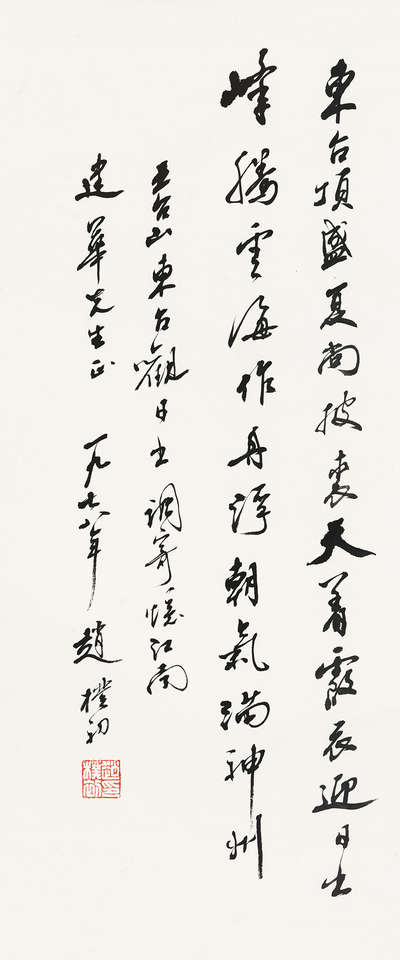 東台頂盛夏尚披裘天着霞衣迎日出
峰騰雲海作舟浮朝氣滿神州
五台山東台觀日出調寄憶江南
建華先生正 一九七八年 趙樸初
趙樸初